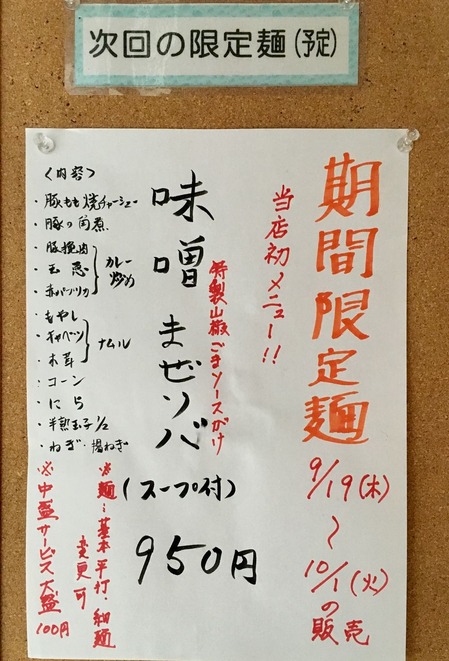 次回の限定麺(予定)
期間限定麺
9/19(木)
〜
10/1(火)
の販売
当店初メニュー!!
特製山椒ごまソースがけ
味噌まぜソバ
(スープ付)
950円
〈内容〉
・豚もも焼チャーシュー
・豚の角煮
・豚挽肉
・玉葱
・赤パプリカ
カレー炒め
・もやし
・キャベツ
・木茸
ナムル
・コーン
・にら
・半熟玉子1/2
・ねぎ・揚ねぎ
※麺…基本平打・細麺
変更可
※中盛サービス大盛
100円